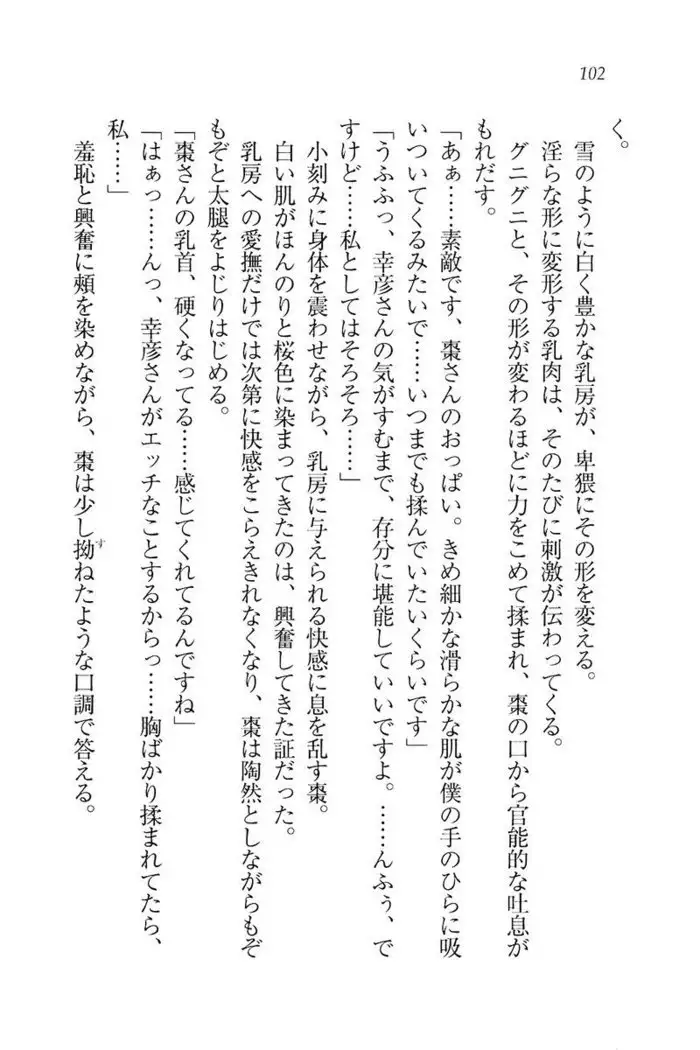 102
く。
雪のように白く豊かな乳房が、卑猥にその形を変える。
淫らな形に変形する乳肉は、そのたびに刺激が伝わってくる。
グニグニと、その形が変わるほどに力をこめて揉まれ、棗の口から官能的な吐息が
もれだす。
「あぁ……素敵です、棗さんのおっぱい。きめ細かな滑らかな肌が僕の手のひらに吸
いついてくるみたいで……いつまでも揉んでいたいくらいです」
「うふふっ、幸彦さんの気がすむまで、存分に堪能していいですよ。……んふぅ、で
すけど……私としてはそろそろ……」
小刻みに身体を震わせながら、乳房に与えられる快感に息を乱す棗。
白い肌がほんのりと桜色に染まってきたのは、興奮してきた証だった。
乳房への愛撫だけでは次第に快感をこらえきれなくなり、棗は陶然としながらもぞ
もぞと太腿をよじりはじめる。
「棗さんの乳首、硬くなってる……感じてくれてるんですね」
「はぁっ……んっ、幸彦さんがエッチなことするからっ……胸ばかり揉まれてたら、
私……」
羞恥と興奮に頬を染めながら、棗は少し拗ねたような口調で答える。